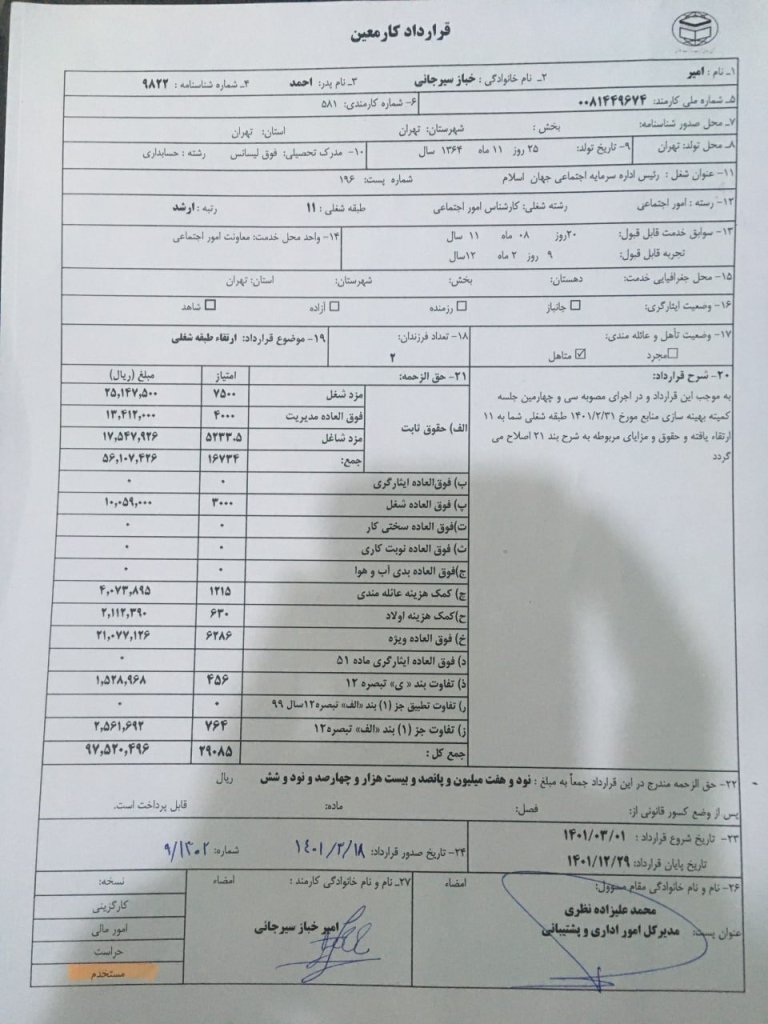 قرارداد کارمعین
۱ـ نام : امیر ۲ـ نام خانوادگی : خباز سیرجانی ۳ـ نام پدر: احمد ۴ـ شماره شناسنامه : ۹۸۲۲
۵ـ شماره ملی کارمند: ۰۰۸۱۴۴۹۶۷۴ ۶- شماره کارمندی: ۵۸۱
۷- محل صدور شناسنامه: بخش : شهرستان: تهران استان: تهران
۸- محل تولد: تهران ۹- تاریخ تولد: ۲۵ روز ۱۱ ماه ۱۳۶۴ سال ۱۰- مدرک تحصیلی: فوق لیسانس رشته : حسابداری
۱۱- عنوان شغل : رئیس اداره سرمایه اجتماعی جهان اسلام شماره پست: ۱۹۶
۱۲- رسته : امور اجتماعی رشته شغلی: کارشناس امور اجتماعی طبقه شغلی : ۱۱ رتبه : ارشد
۱۳- سوابق خدمت قابل قبول: ۲۰روز ۰۸ ماه ۱۱ سال ۱۴- واحد محل خدمت: معاونت امور اجتماعی
تجربه قابل قبول: ۹ روز ۲ ماه ۱۲سال
۱۵- محل جغرافیایی خدمت: دهستان: بخش: شهرستان: استان: تهران
۱۶- وضعیت ایثارگری: جانباز رزمنده آزاده شاهد
۱۷- وضعیت تأهل و عائله مندی: ۱۸- تعداد فرزندان: ۱۹- موضوع قرارداد: ارتقاء طبقه شغلی
مجرد متاهل ۲
۲۰- شرح قرارداد:
به موجب این قرارداد و در اجرای مصوبه سی و چهارمین جلسه
کمیته بهینه سازی منابع مورخ ۱۴۰۱/۲/۳۱ طبقه شغلی شما به ۱۱
ارتقاء یافته و حقوق و مزایای مربوطه به شرح بند ۲۱ اصلاح می
گردد
۲۱- حق الزحمه: امتیاز مبلغ (ریال)
الف) حقوق ثابت
مزد شغل ۷۵۰۰ ۲۵,۱۴۷,۵۰۰
فوق العاده مدیریت ۴۰۰۰ ۱۳,۴۱۲,۰۰۰
مزد شاغل ۵۲۳۳.۵ ۱۷,۵۴۷,۹۲۶
جمع: ۱۶۷۳۴ ۵۶,۱۰۷,۴۲۶
ب) فوق‌العاده ایثارگری ۰ ۰
پ) فوق العاده شغل ۳۰۰۰ ۱۰,۰۵۹,۰۰۰
ت)فوق العاده سختی کار ۰ ۰
ث) فوق العاده نوبت کاری ۰ ۰
ج)فوق العاده بدی آب و هوا ۰ ۰
چ) کمک هزینه عائله مندی ۱۲۱۵ ۴,۰۷۳,۸۹۵
ح)کمک هزینه اولاد ۶۳۰ ۲,۱۱۲,۳۹۰
خ) فوق العاده ویژه ۶۲۸۶ ۲۱,۰۷۷,۱۲۶
د) فوق العاده ایثارگری ماده ۵۱ ۰
ذ) تفاوت بند « ی» تبصره ۱۲ ۴۵۶ ۱,۵۲۸,۹۶۸
ر) تفاوت تطبیق جز (۱) بند «الف» تبصره۱۲سال ۹۹ ۰ ۰
ز) تفاوت جز (۱) بند «الف» تبصره۱۲ ۷۶۴ ۲,۵۶۱,۶۹۲
جمع کل : ۲۹۰۸۵ ۹۷,۵۲۰,۴۹۶
۲۲- حق الزحمه مندرج در این قرارداد جمعاً به مبلغ : نود و هفت میلیون و پانصد و بیست هزار و چهارصد و نود و شش ریال
پس از وضع کسور قانونی از: فصل: ماده: قابل پرداخت است.
۲۳- تاریخ شروع قرارداد : ۱۴۰۱/۰۳/۰۱ ۲۴- تاریخ صدور قرارداد: شماره: ۹/۱۳۰۲
تاریخ پایان قرارداد: ۱۴۰۱/۱۲/۲۹
۲۶- نام و نام خانوادگی مقام مسوول: امضاء
محمد علیزاده نظری
عنوان پست: مدیرکل امور اداری و پشتیبانی
۲۷- نام و نام خانوادگی کارمند : امضاء
امیر خباز سیرجانی
نسخه:
کارگزینی
امور مالی
حراست
مستخدم